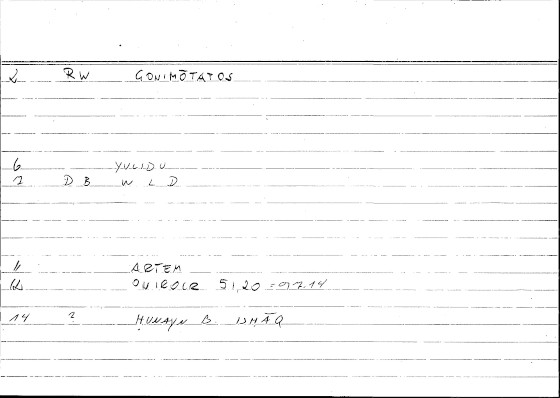 2 RW GONIMŌTATOS
6 YULIDU
7 DB WLD
11 ARTEM
12 ONIROCR 5,20 =
14 ? ḤUNAYN B ISḤĀQ